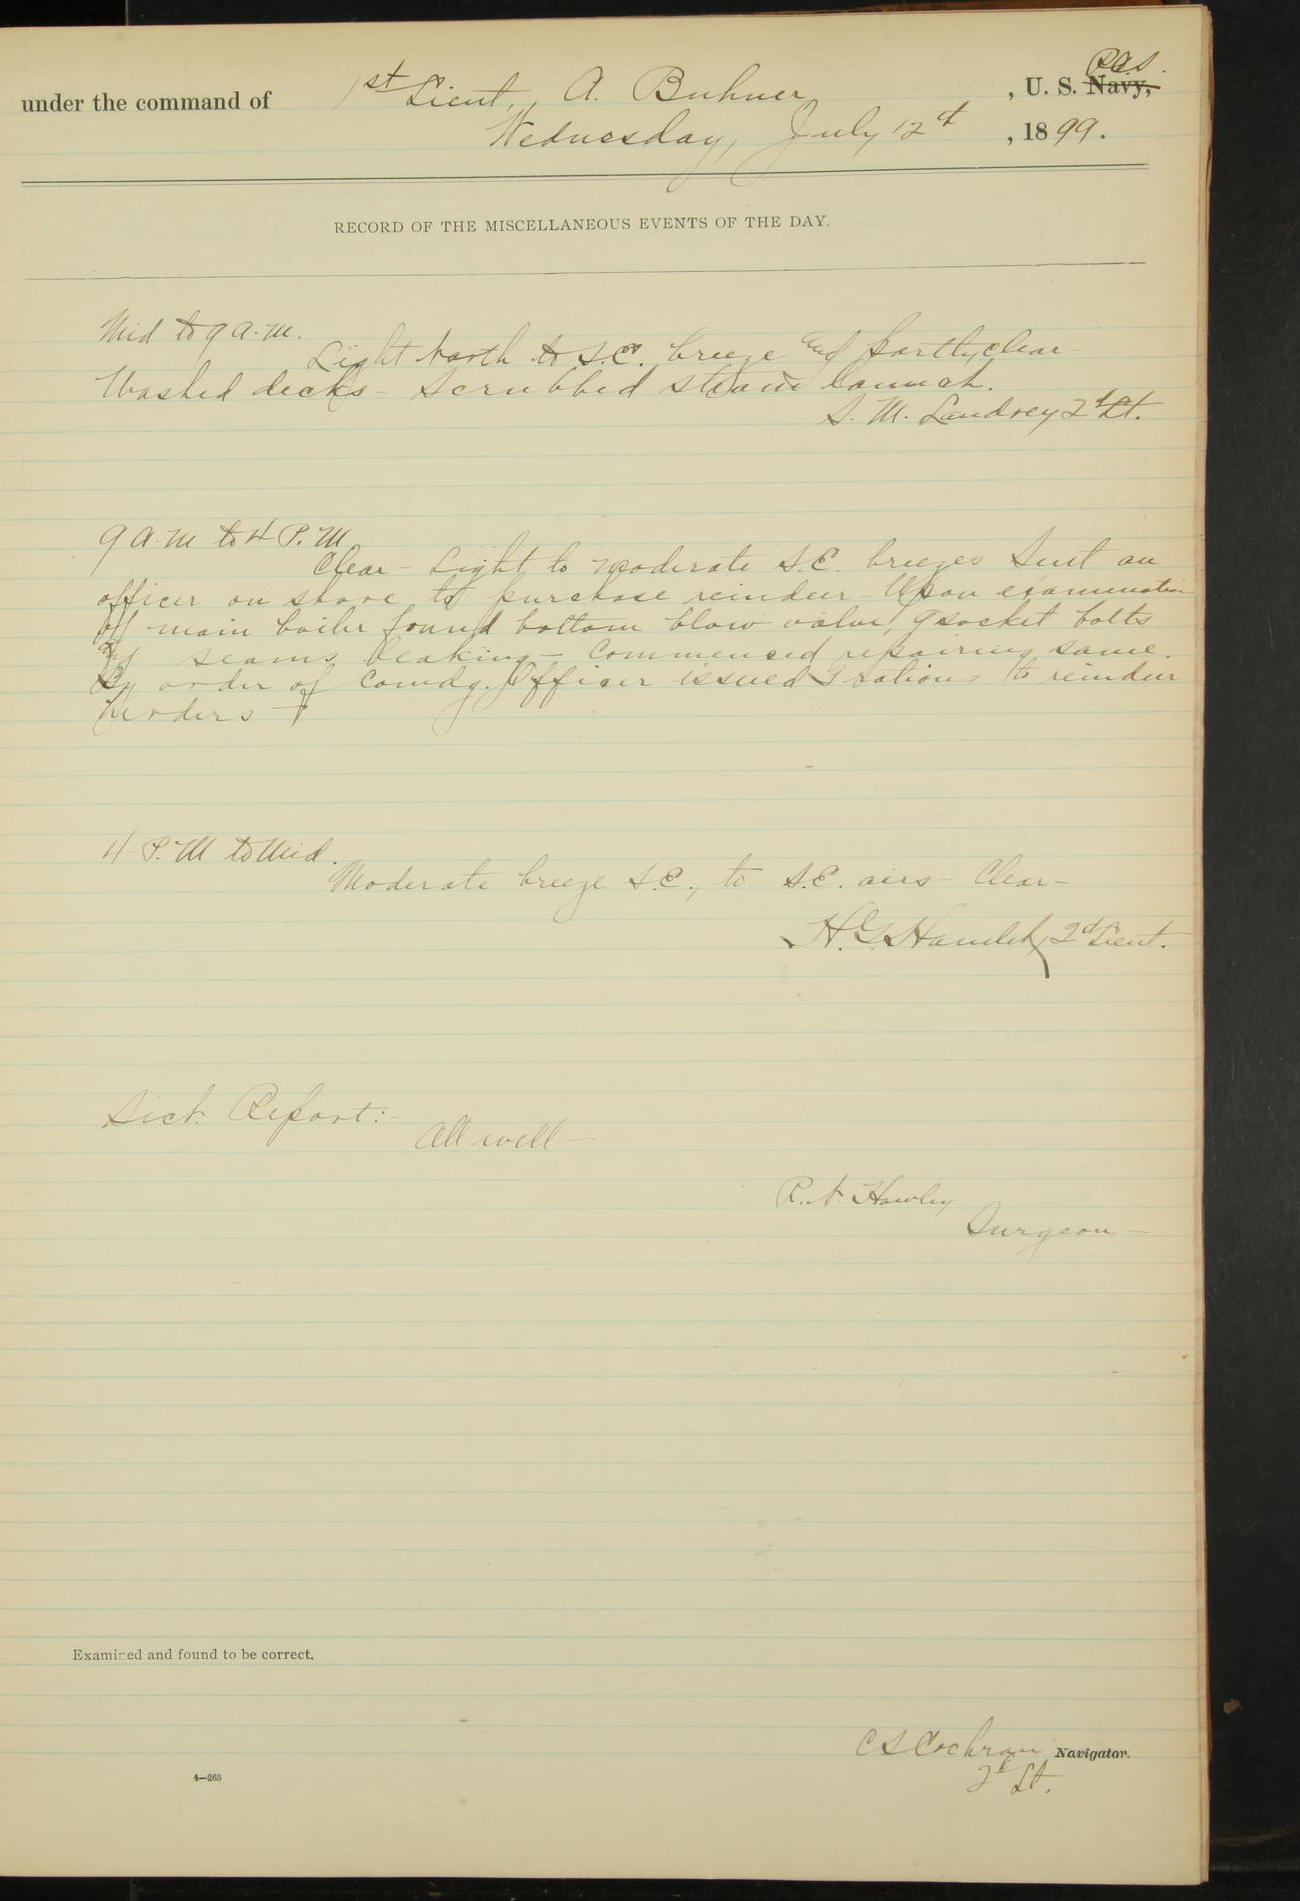 under the command of 1st Lieut, A. Buhner, U. S. Navy, R.C.S.
Wednesday, July 12th, 1899.
RECORD OF THE MISCELLANEOUS EVENTS OF THE DAY.
Mid to 9 A.M.
Light North to S.E. breeze and partly clear
Washed decks - Scrubbed steam launch.
S. M. Landrey 2d Lt.
9 A.M to 4 P.M
Clear - Light to moderate S.E. breezes Sent an
officer on shore to purchase reindeer - Upon examination
of main boiler found bottom blow valve, 9 socket bolts
and seams leaking - Commenced repairing same.
By order of Comdg. Officer issued 3 rations to reindeer
herders -
4 P.M to Mid.
Moderate breeze S.E., to S.E. airs - Clear -
H. G. Hamlet, 2d Lieut.
Sick Report:-
All well -
R. N. Hawley
Surgeon -
Examined and found to be correct.
C S Cochran Navigator.
2d Lt.
4—265